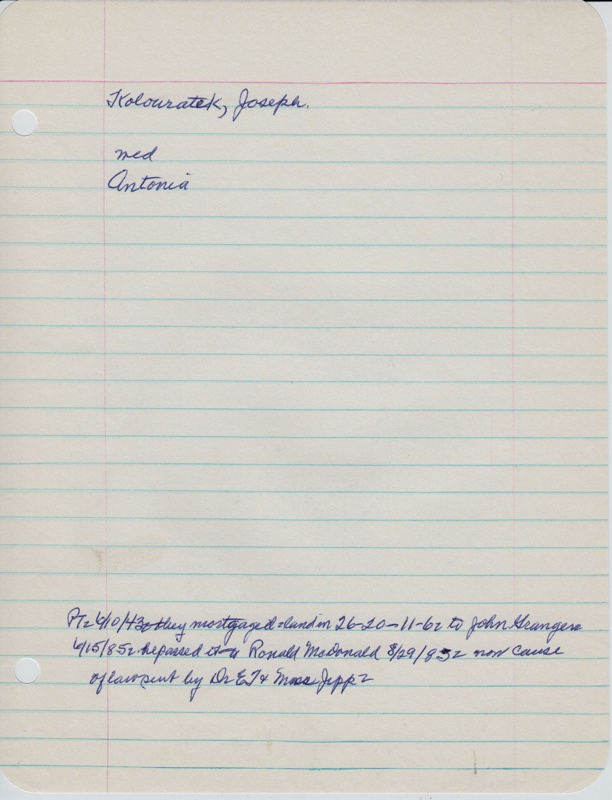 Kolouratek, Joseph.
med
Antonia
they mortgaged land in 26-20-11-6 to John Granger
6/15/85 he passed it to Ronald McDonald 8/29/85 now cause
of law sent by Dr E T &